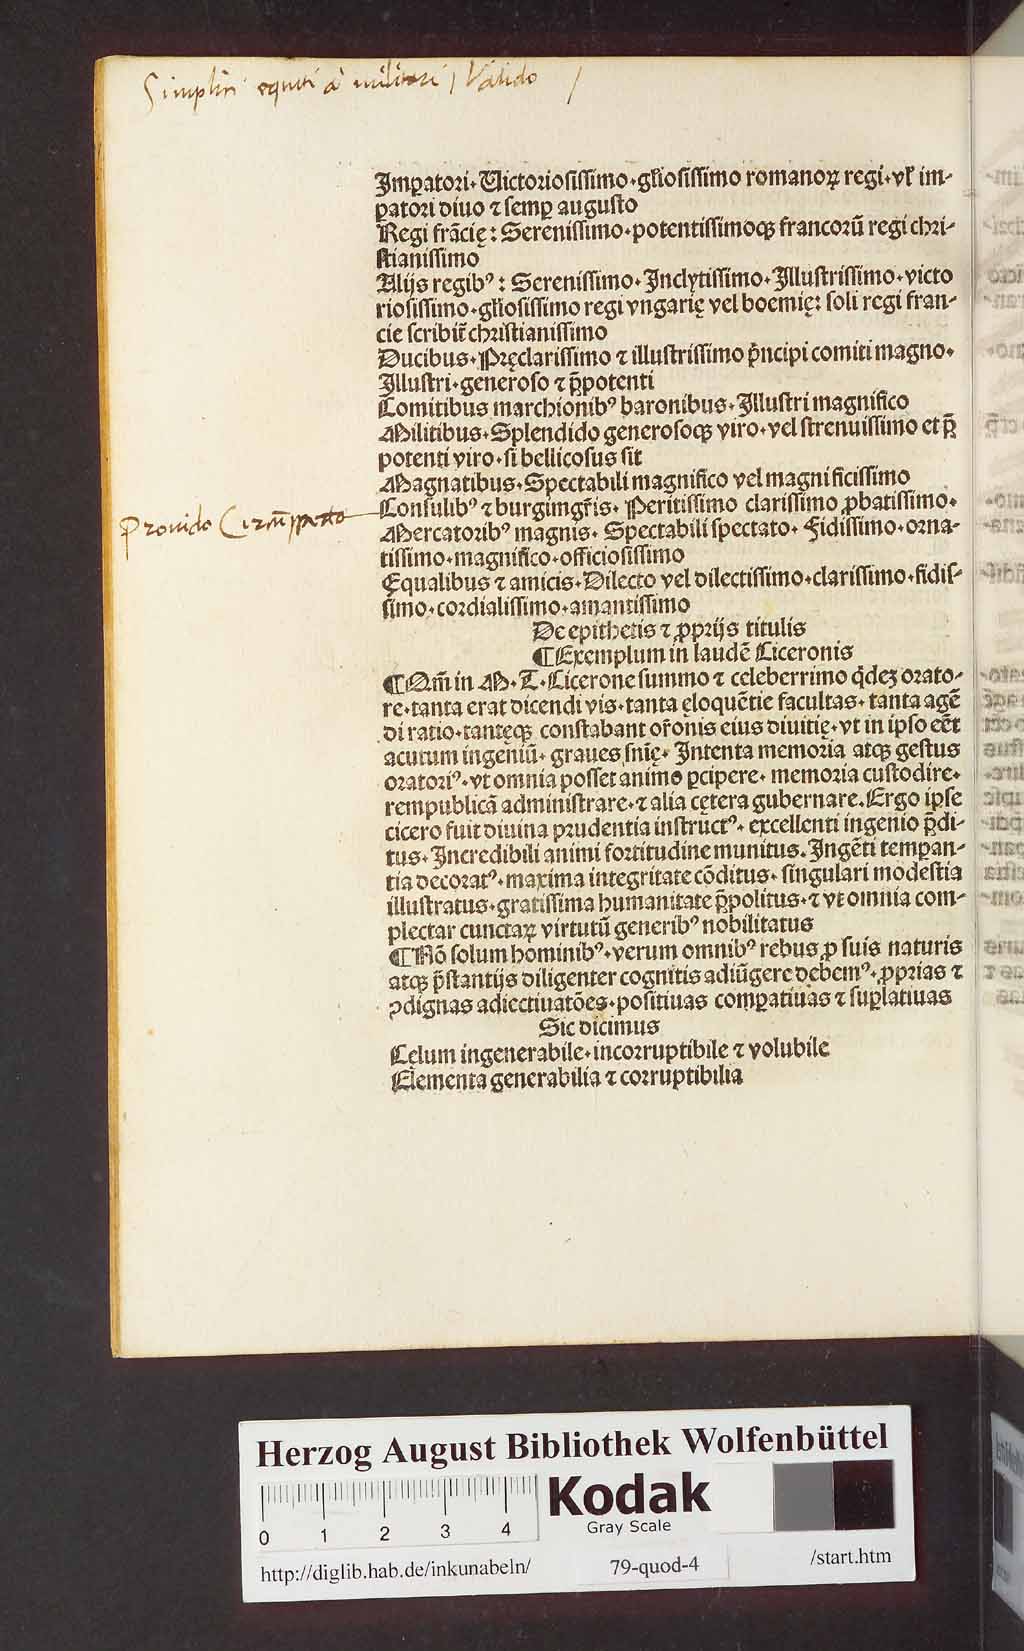 Simplici equiti a militari / Valido /
Imꝑatori. Uictoriosissimo. gl̄iosissimo romanoꝝ regi. vl̓ im-
ꝑatori diuo ⁊ semꝑ augusto
Regi frācię: Serenissimo. potentissimoqꝫ francorū regi chri-
stianissimo
Alijs regibꝰ: Serenissimo. Inclytissimo. Illustrissimo. victo
riosissimo. gl̄iosissimo regi vngarię vel boemię: soli regi fran-
cie scribit̄ christianissimo
Ducibus. Pręclarissimo ⁊ illustrissimo p̄ncipi comiti magno.
Illustri. generoso ⁊ p̄potenti
Comitibus marchionibꝰ baronibus. Illustri magnifico
Militibus. Splendido generosoqꝫ viro. vel strenuissimo et p̄
potenti viro. si bellicosus sit
Magnatibus. Spectabili magnifico vel magnificissimo
Prouido Circūspecto
Consulibꝰ ⁊ burgimgr̄is. Peritissimo clarissimo ꝓbatissimo.
Mercatoribꝰ magnis. Spectabili spectato. Fidissimo. orna-
tissimo. magnifico. officiosissimo
Equalibus ⁊ amicis. Dilecto vel dilectissimo. clarissimo. fidis-
simo. cordialissimo. amantissimo
De epithetis ⁊ ꝓprijs titulis
¶Exemplum in laudē Ciceronis
¶Qm̄ in M. T. Cicerone summo ⁊ celeberrimo q̇deꝫ orato-
re. tanta erat dicendi vis. tanta ęloquētie facultas. tanta agē
di ratio. tantęqꝫ constabant or̄onis eius diuitię. vt in ipso eēt
acutum ingeniū. graues sn̄ię. Intenta memoria atqꝫ gestus
oratoriꝰ. vt omnia posset animo ꝑcipere. memoria custodire.
rempublicā administrare. ⁊ alia cętera gubernare. Ergo ipse
cicero fuit diuina prudentia instructꝰ. excellenti ingenio p̄di-
tus. Incredibili animi fortitudine munitus. Ingēti temꝑan-
tia decoratꝰ. maxima integritate cōditus. singulari modestia
illustratus. gratissima humanitate p̄politus. ⁊ vt omnia com-
plectar cunctaꝝ virtutū generibꝰ nobilitatus
¶Nō solum hominibꝰ. verum omnibꝰ rebus ꝓ suis naturis
atqꝫ p̄stantijs diligenter cognitis adiūgere debemꝰ. ꝓprias ⁊
ꝯdignas adiectiuatōes. positiuas comꝑatiuas ⁊ suꝑlatiuas
Sic dicimus
Celum ingenerabile. incorruptibile ⁊ volubile
Elementa generabilia ⁊ corruptibilia
Herzog August Bibliothek Wolfenbüttel
0 1 2 3 4
Kodak
Gray Scale
http://diglib.hab.de/inkunabeln/ 79-quod-4 /start.htm